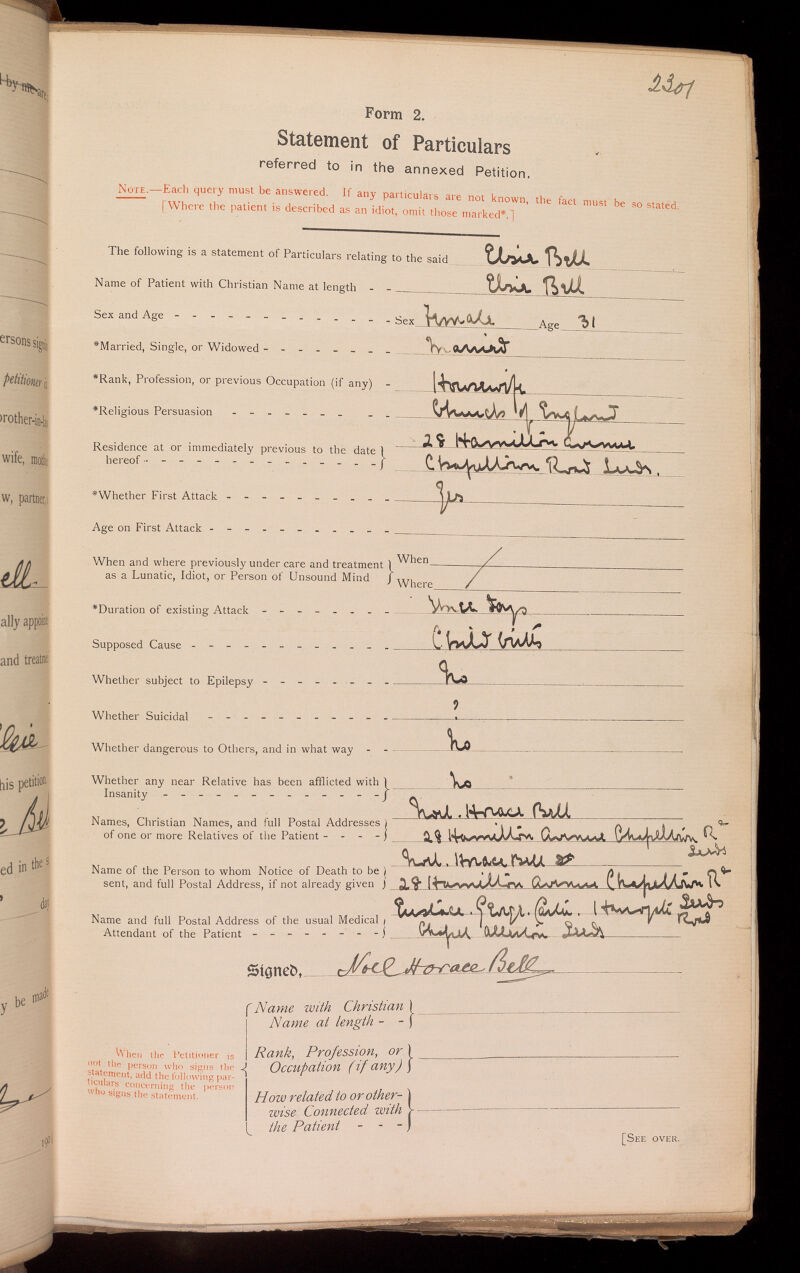 2301
Form 2.
Statement of Particulars
referred to in the annexed Petition.
NOTE.—Each query must be answered. If any particulars are not known, the fact must be so stated.
[Where the patient is described as an idiot, omit those marked*.]
The following is a statement of Particulars relating to the said Elsie Bell
Name of Patient with Christian Name at length - - Elsie Bell
Sex and Age - - - - - - - - - - - - - Sex Female Age 31
*Married, Single, or Widowed - - - - - - - - Married
*Rank, Profession, or previous Occupation (if any) - Housewife
*Religious Persuasion - - - - - - - - - Church of England
Residence at or immediately previous to the date } 28 Hamilton Avenue
hereof - - - - - - - - - - - - - - } Chapeltown Road Leeds.
*Whether First Attack - - - - - - - - - - Yes
Age on First Attack - - - - - - - - - - -
When and where previously under care and treatment } When
as a Lunatic, Idiot, or Person of Unsound Mind } Where
*Duration of existing Attack - - - - - - - three days
Supposed Cause - - - - - - - - - - - - Child birth
Whether subject to Epilepsy - - - - - - - - No
Whether Suicidal - - - - - - - - - - - ?
Whether dangerous to Others, and in what way - - No
Whether any near Relative has been afflicted with } No
Insanity - - - - - - - - - - - - - - }
Names, Christian Names, and full Postal Addresses } Noel. Horace Bell
of one or more Relatives of the Patient - - - - } 28 Hamilton Avenue Chapeltown Rd Leeds
Name of the Person to whom Notice of Death to be } Noel. Horace Bell
sent, and full Postal Address, if not already given } 28 Hamilton Avenue Chapeltown Rd Leeds
Name and full Postal Address of the usual Medical } Eustace. George. Harrogate Road
Attendant of the Patient - - - - - - - - } Chapel Allerton Leeds
Signed, Noel Horace Bell
Name with Christian
Name at length - -
When the Petitioner is
not the person who signs the
statement, add the following par-
ticulars concerning the person
who signs the statement.
Rank, Profession, or
Occupation (if any)
How related to or other-
wise Connected with
the Patient - - -
[SEE OVER.